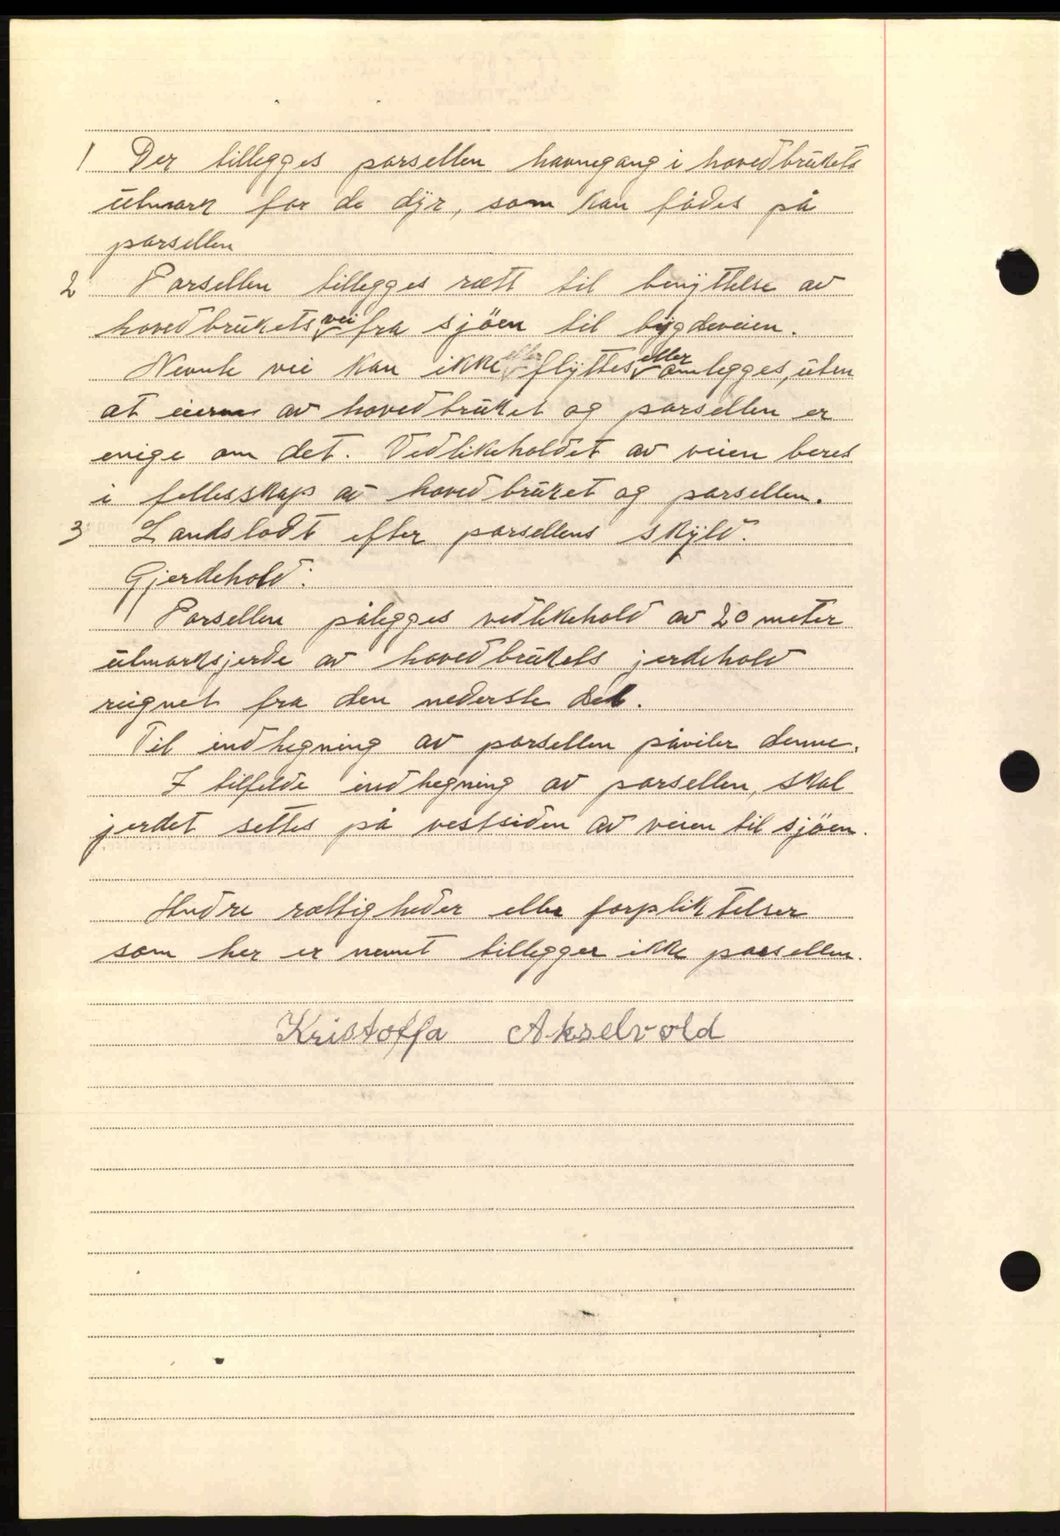 1 Der tillegges parsellen havnegang i hovedbrukets
utmark for de dyr, som kan fødes på
parsellen
2 Parsellen tillegges rett til benyttelse av
hovedbrukets vei fra sjöen til bygdeveien.
Nevnte vei kan ikke flyttes eller omlegges, uten
at eierne av hovedbruket og parsellen er
enige om det. Vedlikeholdet av veien beres
i fellesskap av hovedbruket og parsellen.
3 Landslodt efter parsellens skyld.
Gjerdehold:
Parsellen pålegges vedlikehold av 20 meter
utmarksjerde av hovedbrukets jerdehold
reignet fra den nederste del.
Til indhegning av parsellen påviler denne.
I tilfelde indhegning av parsellen, skal
jerdet settes på vestsiden av veien til sjöen.
Andre rettigheder eller forpliktelser
som her er nevnt tillegger ikke parsellen.
Kristoffa Akselvold